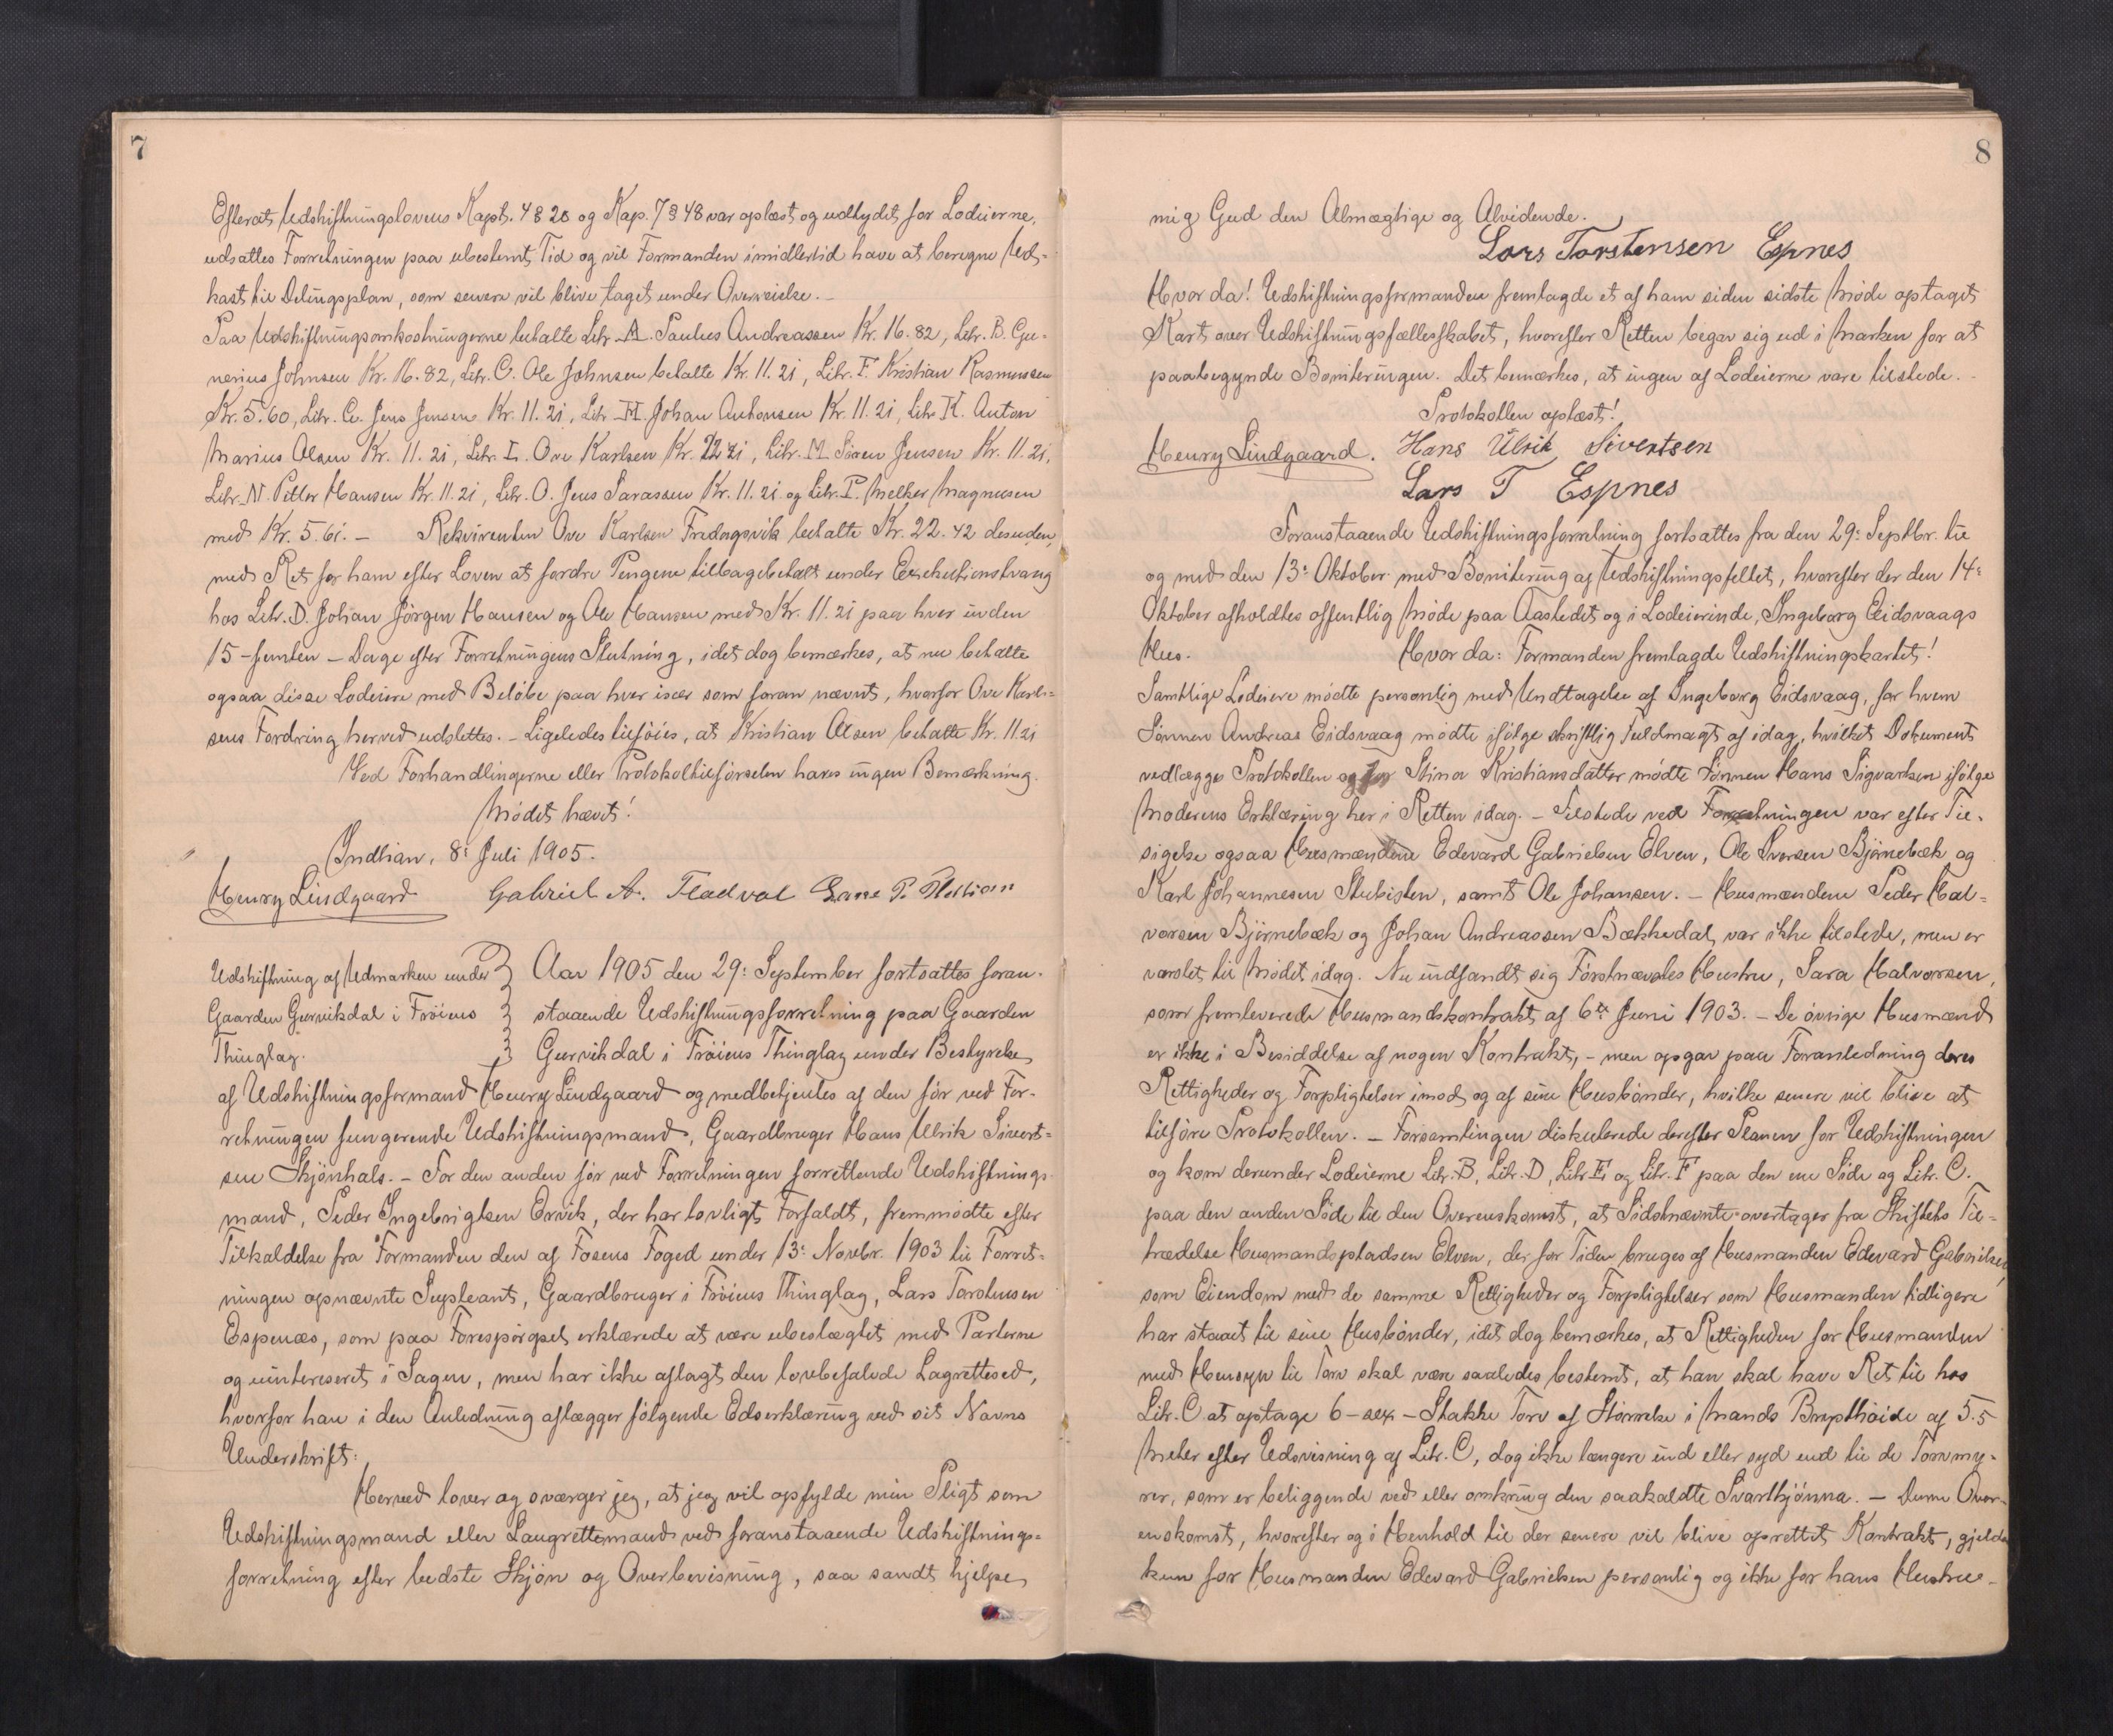 7
Efterat Udskiftningslovens Kapt. 4 § 28 og Kap. 7 § 48 var oplæst og udtydet for Lodeierne,
udsattes Forretningen paa ubestemt Tid og vil Formanden imidlertid have at beregne Ud-
kast til Delingsplan, som senere vil blive taget under Overveielse. –
Paa Udskiftningsomkostningerne betalte Litr. A. Paulus Andreassen Kr. 16.82, Litr. B. Gu-
nerius Johnsen Kr. 16.82, Litr. C. Ole Johnsen betalte Kr. 11.21, Litr. F. Kristian Rasmussen
Kr. 5.60, Litr. G. Jens Jensen Kr. 11.21, Litr. H. Johan Antonsen Kr. 11.21, Litr. K. Anton
Marius Olsen Kr. 11.21, Litr. L. Ove Karlsen Kr. 22 21, Litr. M Sören Jensen Kr. 11.21,
Litr. N. Petter Hansen Kr. 11.21, Litr. O. Jens Sarassen Kr. 11.21 og Litr. P. Melker Magnusen
med Kr. 5.61. – Rekvirenten Ove Karlsen Fredagsvik betalte Kr. 22.42 desuden,
med Ret for ham efter Loven at fordre Pengene tilbagebetalt under Exekutionstvang
hos Litr. D. Johan Jörgen Hansen og Ole Hansen med Kr. 11.21 paa hver inden
15 – femten – Dage efter Forretningens Slutning, idet dog bemærkes, at nu betalte
ogsaa disse Lodeiere med Belöbe paa hver især som foran nævnt, hvorfor Ove Karl-
sens Fordring herved udslettes. – Ligeledes tilföies, at Kristian Olsen betalte Kr. 11 21
Ved Forhandlingerne eller Protokoltilförselen haves ingen Bemærkning.
Mödet hævet!
Indtian, 8: Juli 1905.
Henry Lindgaard Gabriel A. Fladval
Udskiftning af Udmarken under Aar 1905 den 29: September fortsattes foran-
Gaarden Gurvikdal i Fröiens staaende Udskiftningsforretning paa Gaarden
Thinglag. Gurvikdal i Fröiens Thinglag under Bestyrelse
af Udskiftningsformand Henry Lindgaard og medbetjentes af den för ved For-
retningen fungerende Udskiftningsmand, Gaardbruger Hans Ulrik Sivert-
sen Skjönhals. – For den anden för ved Forretningen forrettende Udskiftnings-
mand, Peder Ingebrigtsen Ervik, der har lovligt Forfald, fremmödte efter
Tilkaldelse fra Formanden den af Fosens Foged under 13: Novbr. 1903 til Forret-
ningen opnævnte Supleant, Gaardbruger i Fröiens Thinglag, Lars Torstensen
Espenæs, som paa Forespörgsel erklærede at være ubeslægtet med Parterne
og uintereseret i Sagen, men har ikke aflagt den lovbefalede Lagretteed,
hvorfor han i den Anledning aflægger fölgende Edserklæring ved sit Navns
Underskrift:
Herved lover og sværger jeg, at jeg vil opfylde min Pligt som
Udskiftningsmand eller Laugrettemand ved foranstaaende Udskiftnings-
forretning efter bedste Skjön og Overbevisning, saa sandt hjelpe
8
mig Gud den Almægtige og Alvidende.
Lars Torstensen Espnes
Hvor da! Udskiftningsformanden fremlagde et af ham siden sidste Möde optaget
Kart over Udskiftningsfællesskabet, hvorefter Retten begav sig ud i Marken for at
paabegynde Boniteringen. Det bemærkes, at ingen af Lodeierne vare tilstede. –
Protokollen oplæst!
Henry Lindgaard. Hans Ulrik Sivertsen
Lars T Espnes
Foranstaaende Udskiftningsforretning fortsattes fra den 29: Septbr. til
og med den 13: Oktober med Bonitering af Udskiftningsfeltet, hvorefter der den 14:
Oktober afholdtes offentlig Möde paa Aastedet og i Lodeierinde, Ingeborg Eidsvaags
Hus. Hvor da: Formanden fremlagde Udskiftningskartet!
Samtlige Lodeiere mödte personlig med Undtagelse af Ingeborg Eidsvaag, for hvem
Sönnen Andreas Eidsvaag mödte ifölge skriftlig Fuldmagt af idag, hvilket Dokument
vedlægges Protokollen og for Stina Kristiansdatter mödte Sönnen Hans Sigvartsen ifölge
Moderens Erklæring her i Retten idag. – Tilstede ved Forretningen var efter Til-
sigelse ogsaa Husmændene Edevard Gabrielsen Elven, Ole Iversen Björnebæk og
Karl Johannesen Stubisten, samt Ole Johansen. – Husmændene Peder Hal-
vorsen Björnebæk og Johan Andreassen Bækkedal, var ikke tilstede, men er
varslet til Mödet idag. Nu indfandt sig Förstnævntes Hustru, Sara Halvorsen,
som fremleverede Husmandskontrakt af 6te Juni 1903. – De övrige Husmænd
er ikke i Besiddelse af nogen Kontrakt, – men opgav paa Foranledning deres
Rettigheder og Forpligtelser imod og af sine Husbönder, hvilke senere vil blive at
tilföre Protokollen. – Forsamlingen diskuterede derefter Planen for Udskiftningen
og kom derunder Lodeierne Litr. B, Litr. D, Litr E, og Litr. F paa den ene Side og Litr. C.
paa den anden Side til den Overenskomst, at Sidstnævnte overtager fra Skiftets Til-
trædelse Husmandspladsen Elven, der for Tiden bruges af Husmanden Edevard Gabrielsen,
som Eiendom med de samme Rettigheder og Forpligtelser som Husmanden tidligere
har staaet til sine Husbönder, idet dog bemærkes, at Rettigheden for Husmanden
med Hensyn til Torv skal være saaledes bestemt, at han skal have Ret til hos
Litr. C at optage 6 – sex – Stakke Torv af Störrelse i Mands Brysthöide af 5.5
Meter efter Udvisning af Litr. C, dog ikke længere ind eller syd end til de Torvmy-
rer, som er beliggende ved eller omkring den saakaldte Svarttjönna. – Denne Over-
enskomst, hvorefter og i Henhold til der senere vil blive oprettet Kontrakt, gjelder
kun for Husmanden Edevard Gabrielsen personlig og ikke for hans Hustru –